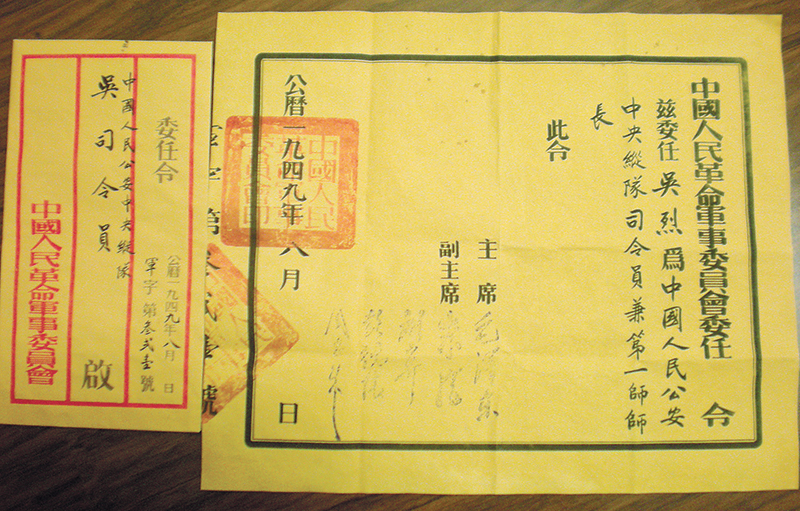 中國人民革命軍事委員會委任令
茲委任吳烈爲中國人民公安
中央縱隊司令員兼第一師師
長
此令
主席 毛澤東
副主席 朱德
公曆一九四九年八月 日
中國人民
革命軍事
委員會印
軍字第叁貳壹號
公曆一九四九年八月 日
委任令
軍字第叁貳壹號
中國人民公安中央縱隊
吳司令員
啟
中國人民革命軍事委員會